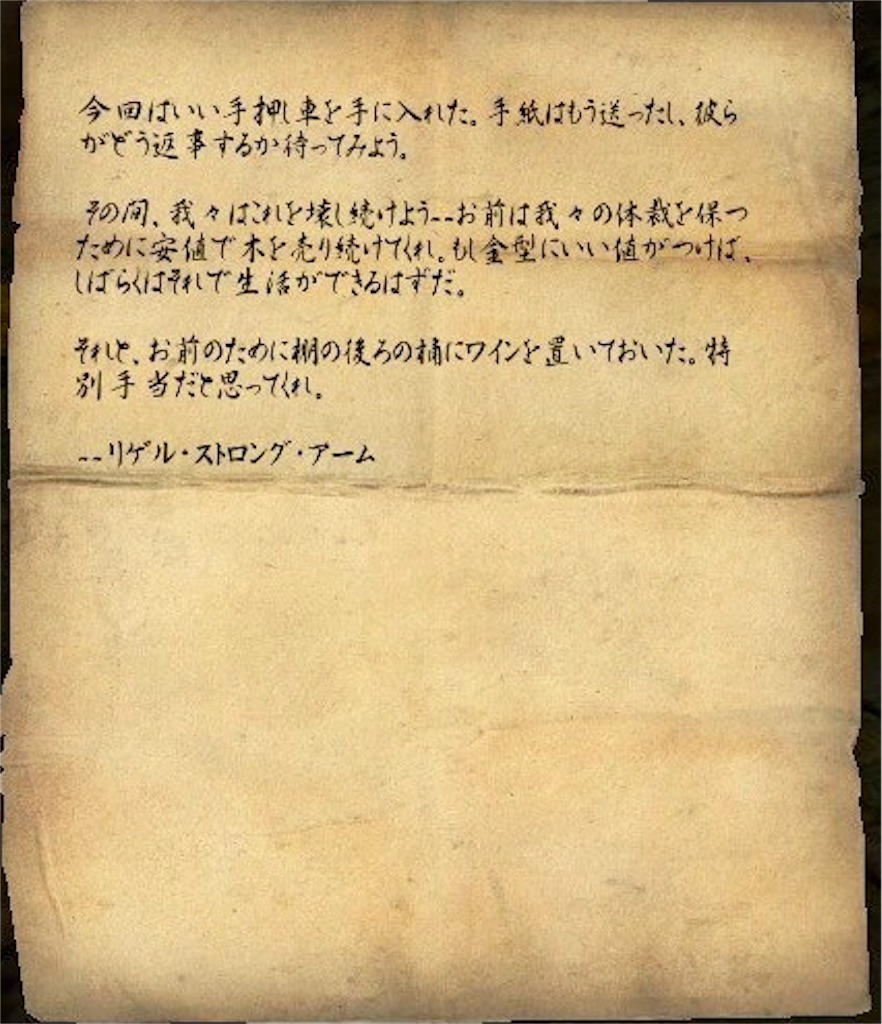 今回はいい手押し車を手に入れた。手紙はもう送ったし、彼ら
がどう返事するか待ってみよう。
その間、我々はこれを壊し続けよう--お前は我々の体裁を保つ
ために安値で木を売り続けてくれ。もし金型にいい値がつけば、
しばらくはそれで生活ができるはずだ。
それと、お前のために棚の後ろの桶にワインを置いておいた。特
別手当だと思ってくれ。
--リゲル・ストロング・アーム